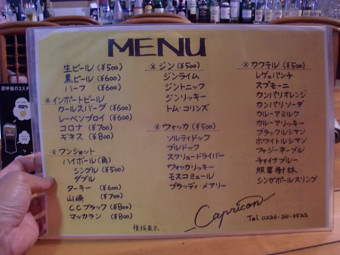 MENU
生ビール (¥500)
黒ビール (¥600)
ハーフ (¥600)
※インポートビール
クールスバーグ (¥600)
レーベンブロイ (¥600)
コロナ (¥700)
ギネス (¥800)
※ワンショット
ハイボール(角)
シングル (¥500)
ダブル
ターキー (¥600)
山崎 (¥700)
C.Cブラック (¥800)
マッカラン (¥800)
※ジン (¥500)
ジンライム
ジントニック
ジンリッキー
トム・コリンズ
※ウォッカ (¥500)
ソルティドッグ
ブルドック
スクリュードライバー
ウォッカリッキー
モスコミュール
ブラッディ・メアリー
※カクテル (¥500)
レゲェパンチ
スプモーニ
カンパリオレンジ
カンパリソーダ
カルーアミルク
カルーアリッキー
ブラックルシアン
ホワイトルシアン
ファジーネーブル
チャイナブルー
照葉樹林
シンガポールスリング
Capricorn